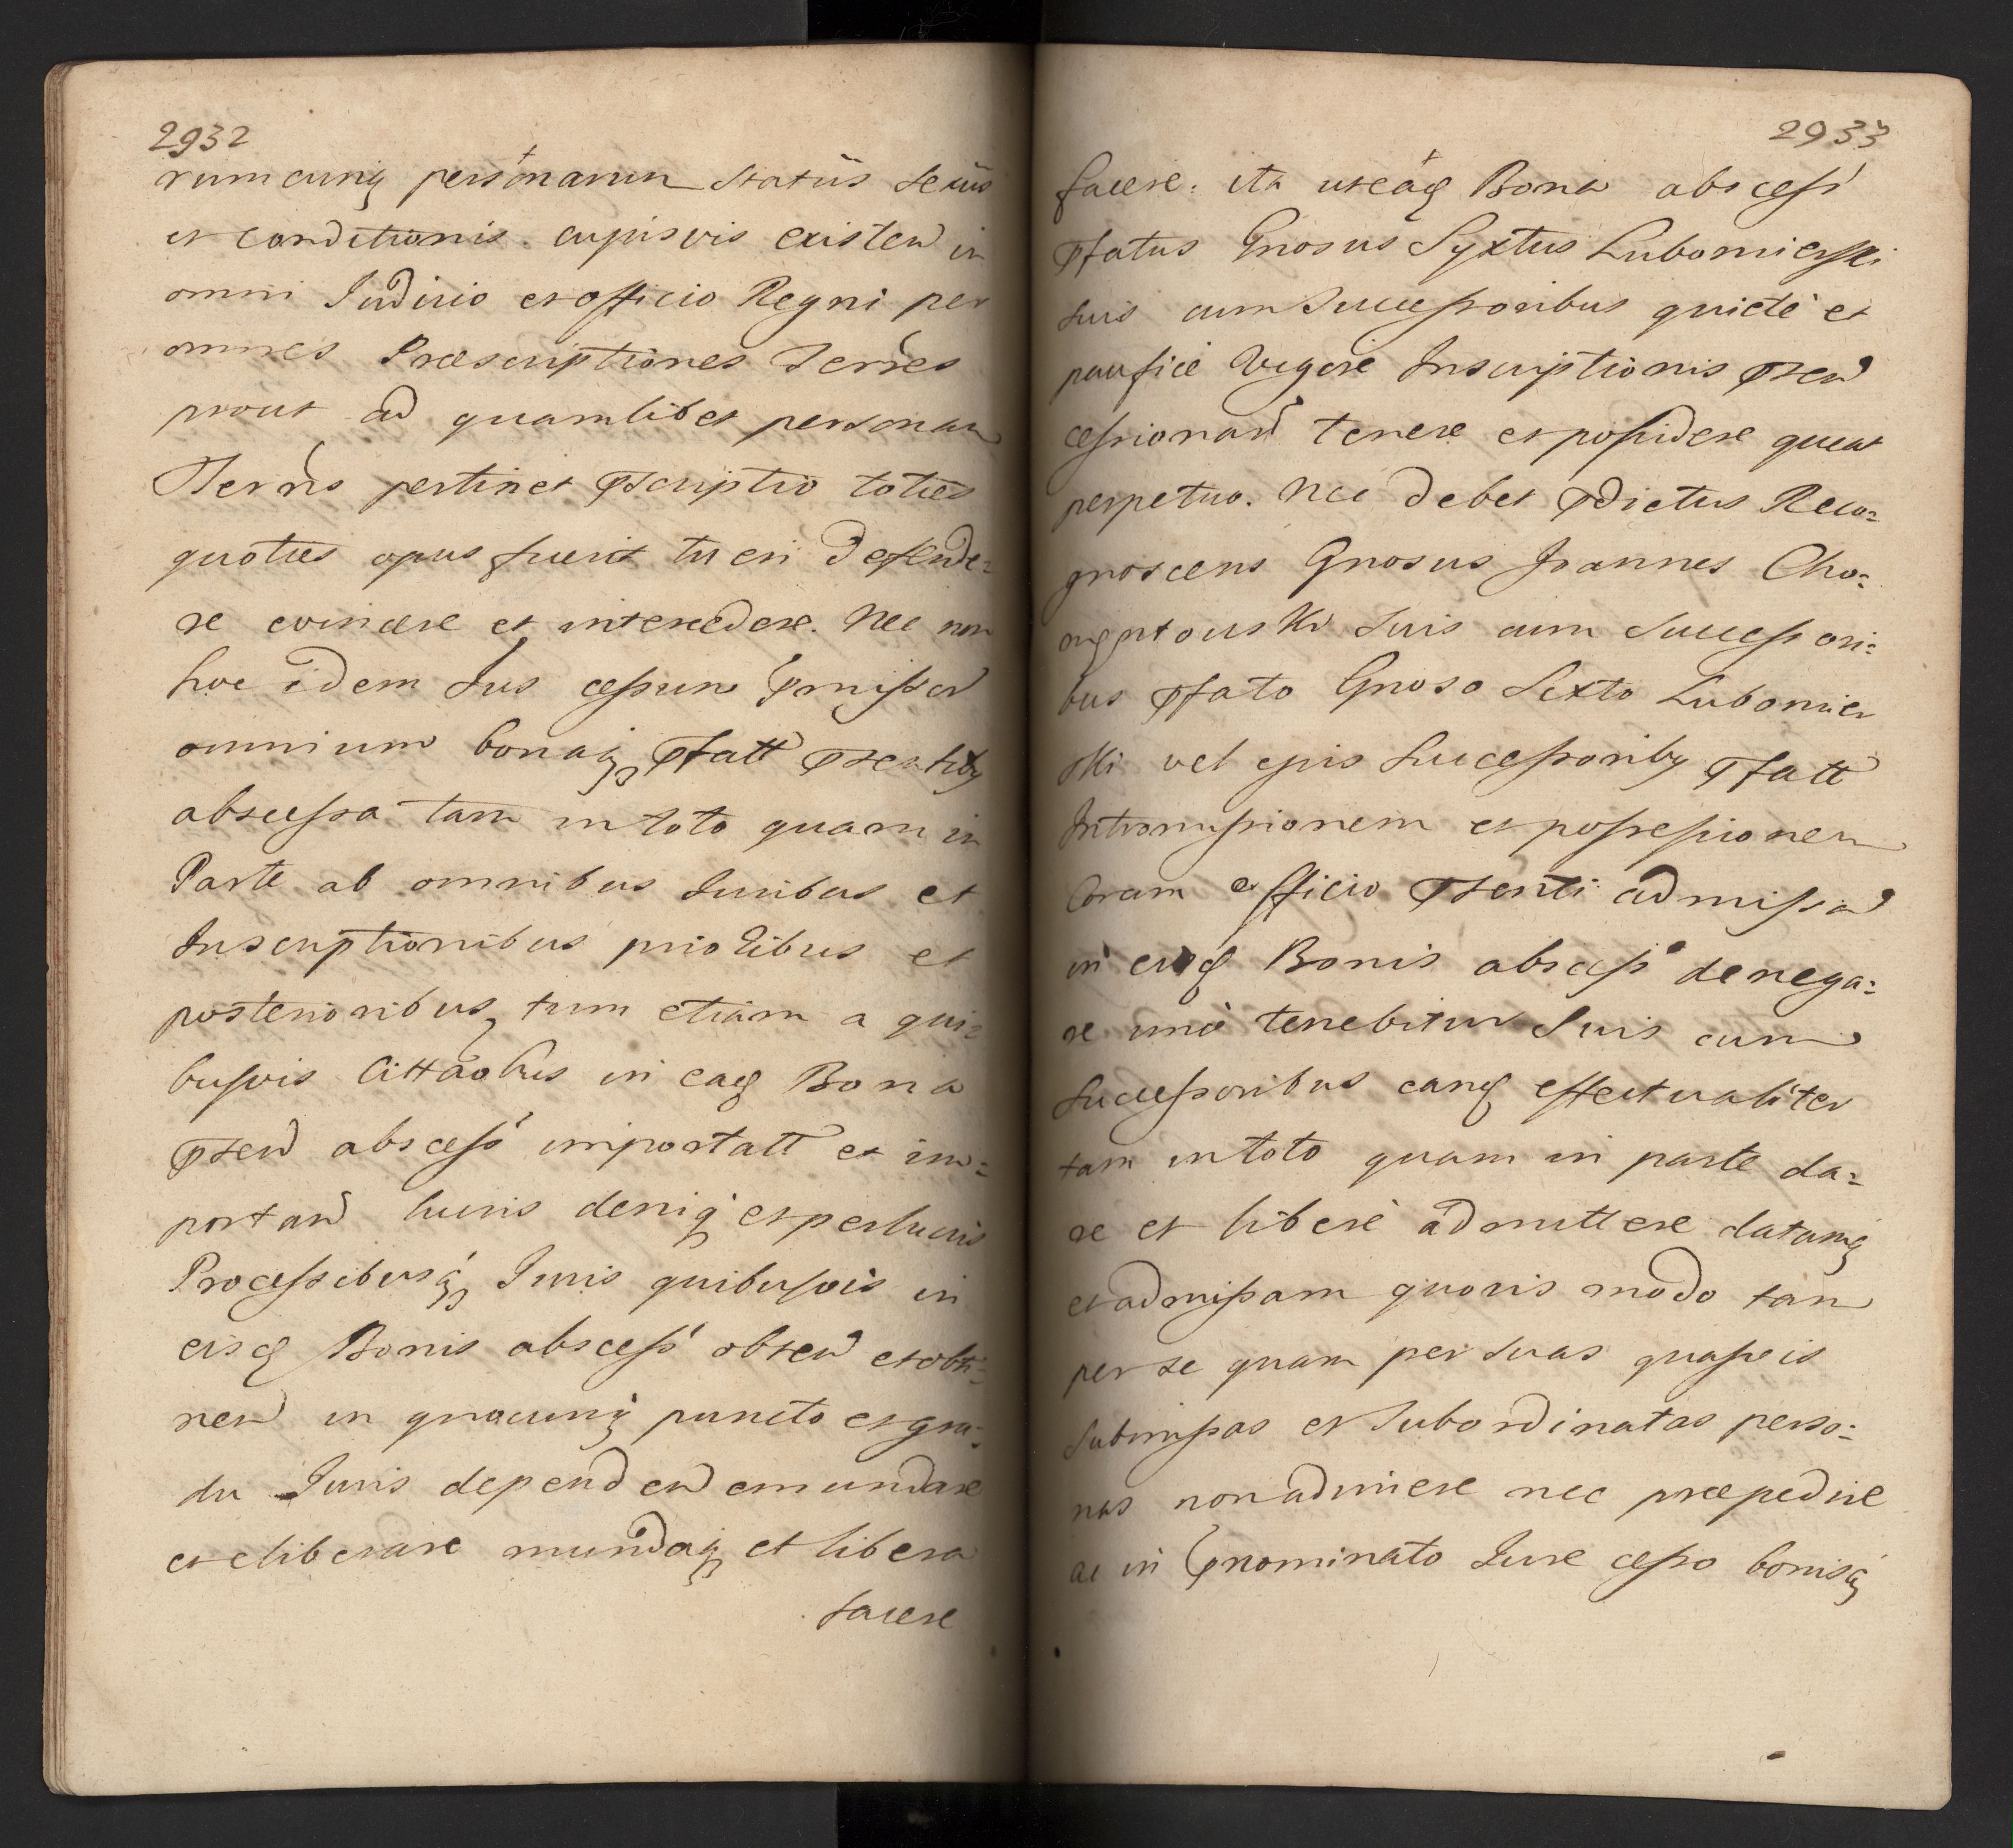 2932
rumcunq personarum status sexus
et conditionis cujusvis existen in
omni Judicio et officio Regni per
omnes Præscriptiones Terres
prout ad quamlibet personam
Terrs pertinet pscriptio toties
quoties opus fuerit tueri defende=
re evincere et intercedere. Nec non
hoc idem Jus cessum pmissor
omnium bonaq pfatt psentibq
abscessa tam in toto quam in
Parte ab omnibus Juribus et
Inscriptionibus prioribus et
posterioribus, tum etiam a qui=
busvis Cittaobus in eaq Bona
psen abscess importatt et im=
portan lucris deniq et perlucris
Processibusq Juris quibusvis in
eisq Bonis abscess obten et obti=
nen in quocunq puncto et gra=
du Juris dependen emundare
et eliberare mundaq et libera
facere
2933
facere: ita ut eaq Bona abscess
pfatus Gnosus Syxtus Lubomierski
suis cum Successoribus quiete et
pacifice vigore Inscriptionis psen
cessionar tenere et possidere queat
perpetuo. Nec debet pdictus Reco=
gnoscens Gnosus Joannes Cho=
suis cum successori=
bus pfato Gnoso Sixto Lubomier
ski vel ejus Successoribq pfatt
Intromissionem et possessionem
Coram officio psenti admissa
in eisq Bonis abscess denega=
re imo tenebitur Suis cum
Successoribus eanq effectualiter
tam in toto quam in parte da=
re et libere admittere datamq
et admissam quovis modo tam
per se quam per suas quasvis
submissas et subordinatas perso=
nas non adimere nec præpedire
ac in pnominato Jure cesso bonisq